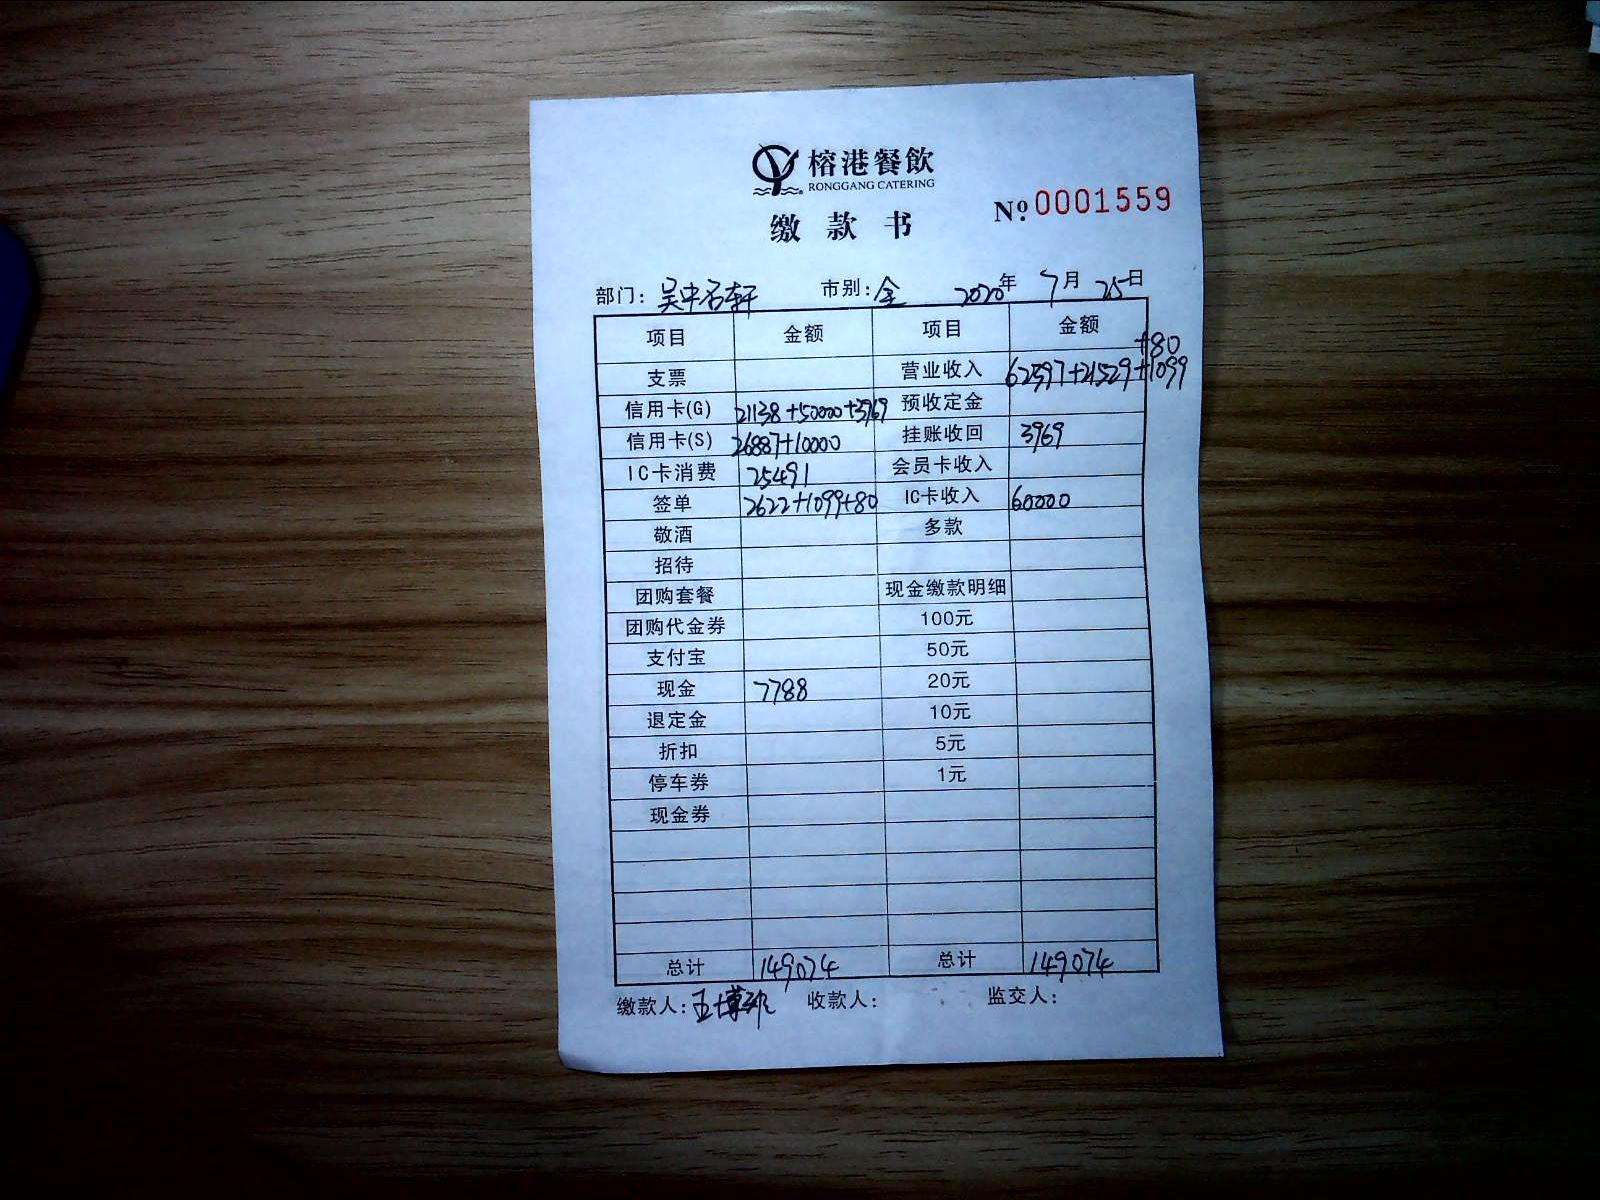 榕港餐飲
RONGGANG CATERING
缴款书
№ 0001559
部门: 吴中名轩 市别: 全 2020年 7月 25日
项目 金额 项目 金额
支票 营业收入 62397+21529+1099+80
信用卡(G) 21138+50000+3969 预收定金
信用卡(S) 26887+10000 挂账收回 3969
IC卡消费 25491 会员卡收入
签单 2622+1099+80 IC卡收入 60000
敬酒 多款
招待
团购套餐 现金缴款明细
团购代金券 100元
支付宝 50元
现金 7788 20元
退定金 10元
折扣 5元
停车券 1元
现金券
总计 149074 总计 149074
缴款人: 王博 收款人: 监交人: